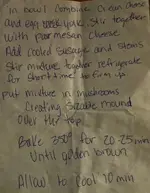 in bowl combine cream cheese
and egg yolk. Stir together
with parmesan cheese
Add cooled sausage and stems
Stir mixture together refrigerate
for short time to firm up
put mixture in mushrooms
Creating sizable mound
over the top
Bake 350° for 20-25 min
Until golden brown
Allow to cool 10 min